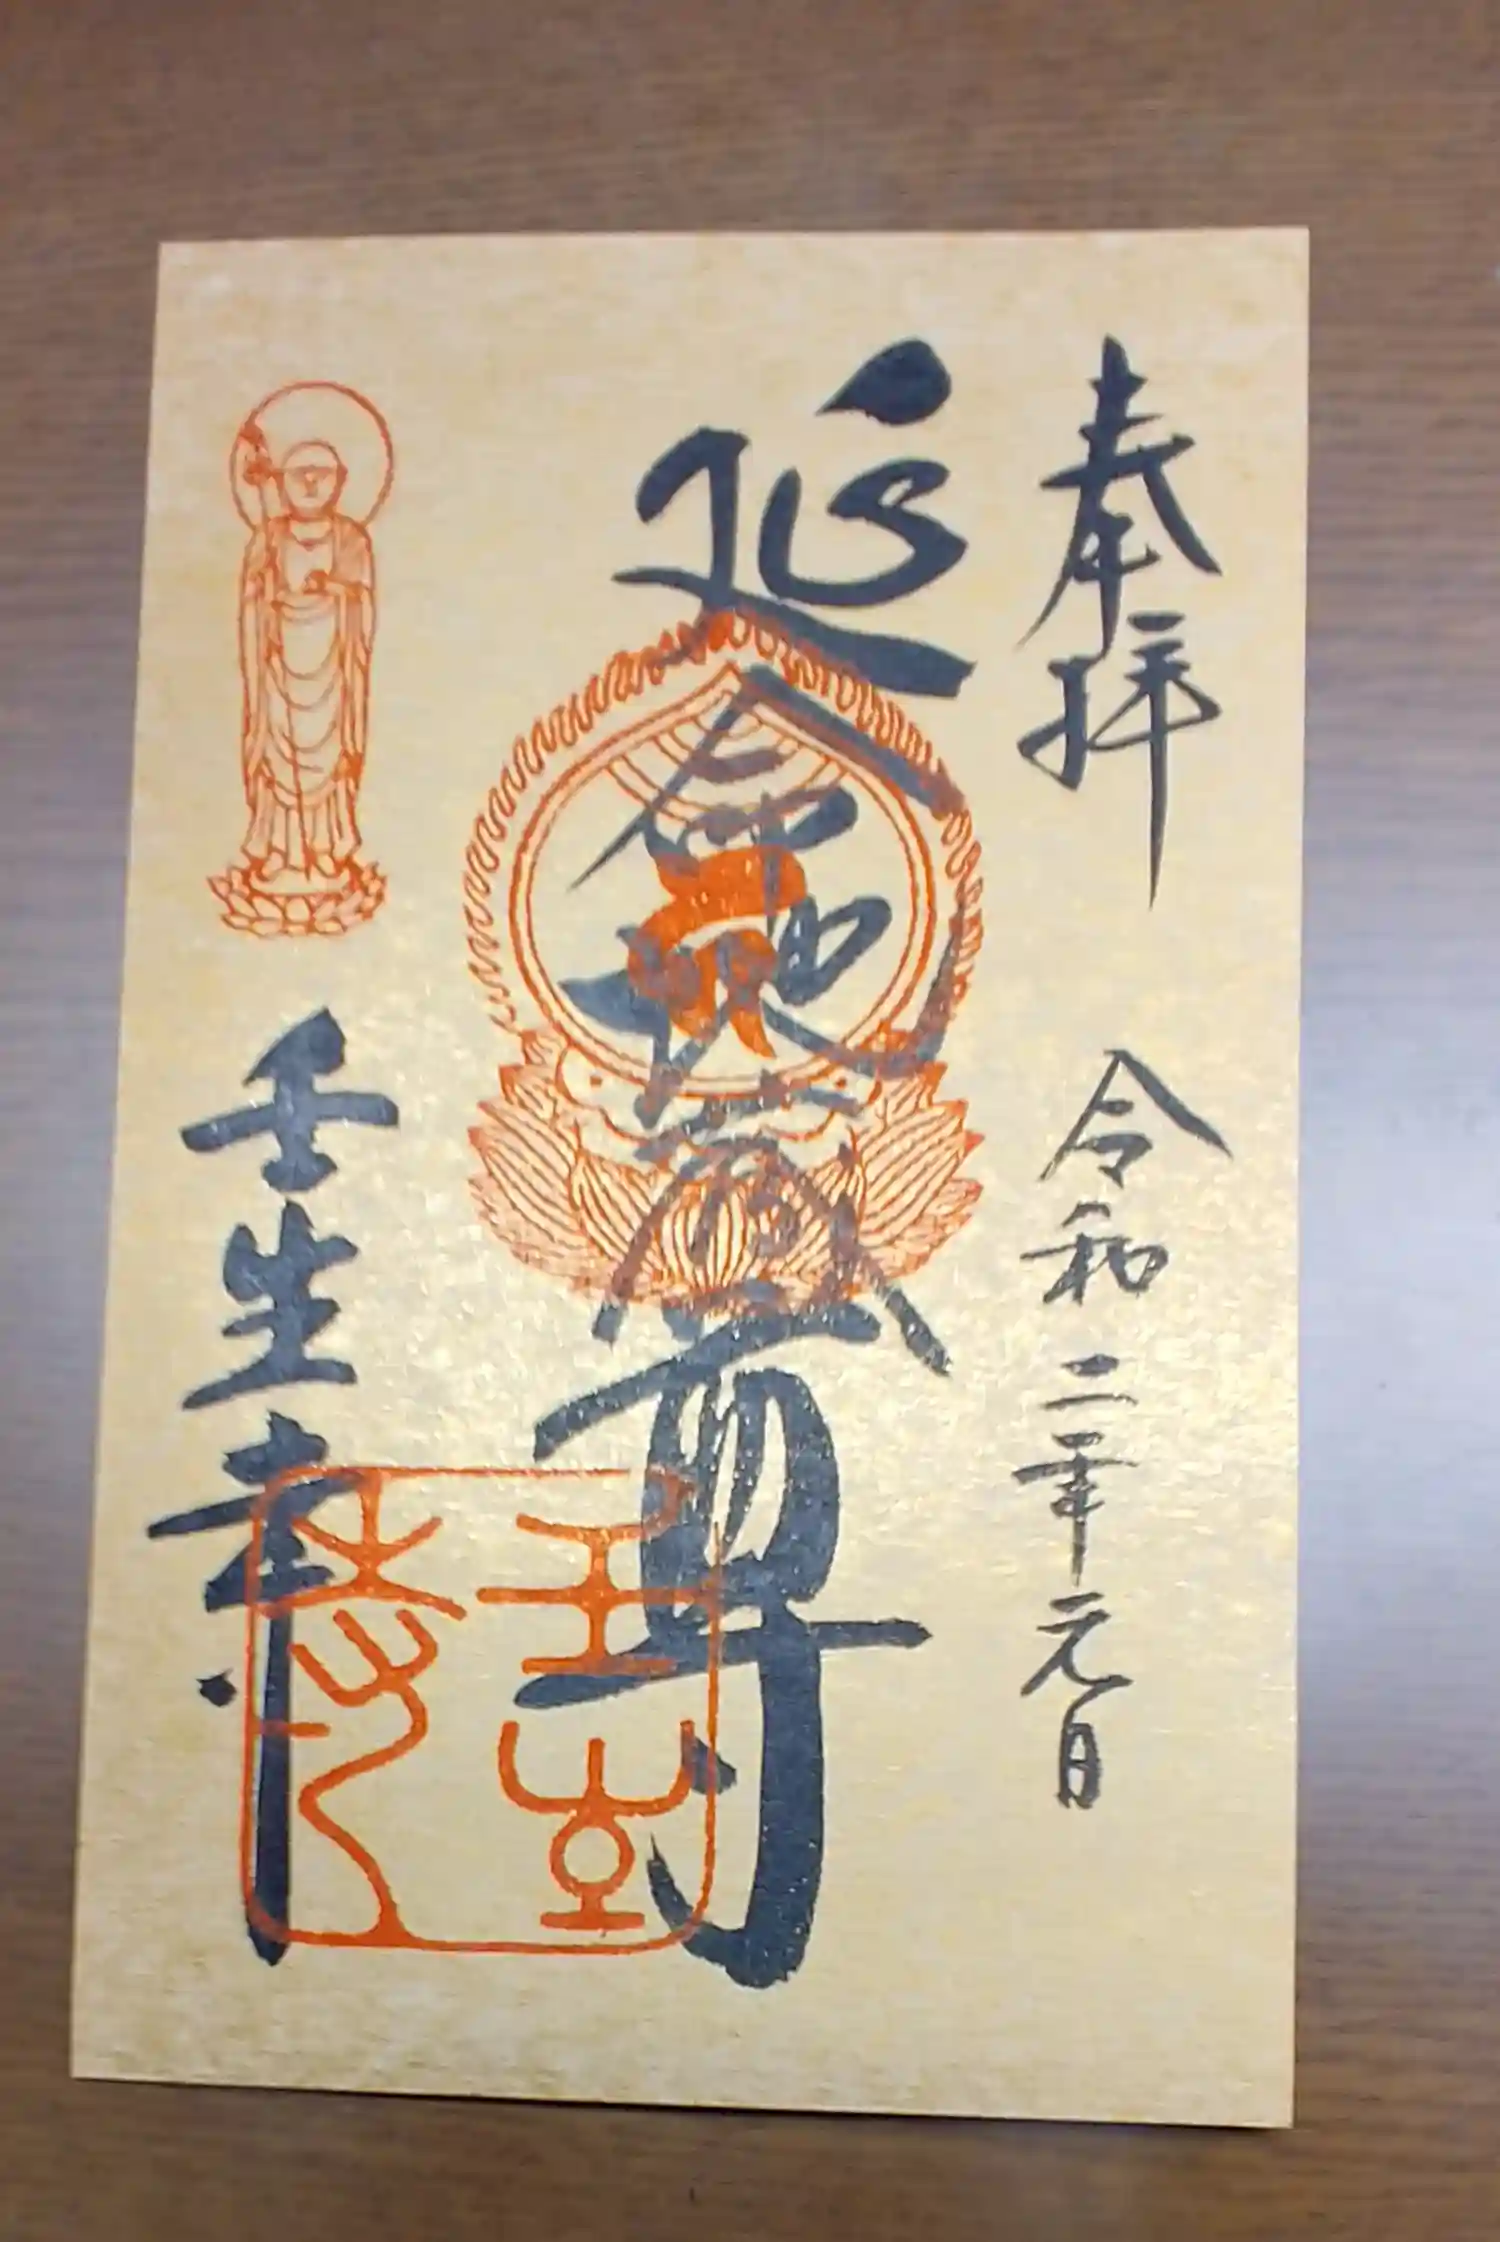 奉拝
令和二年元日
延命地蔵尊
壬生寺
壬生寺印